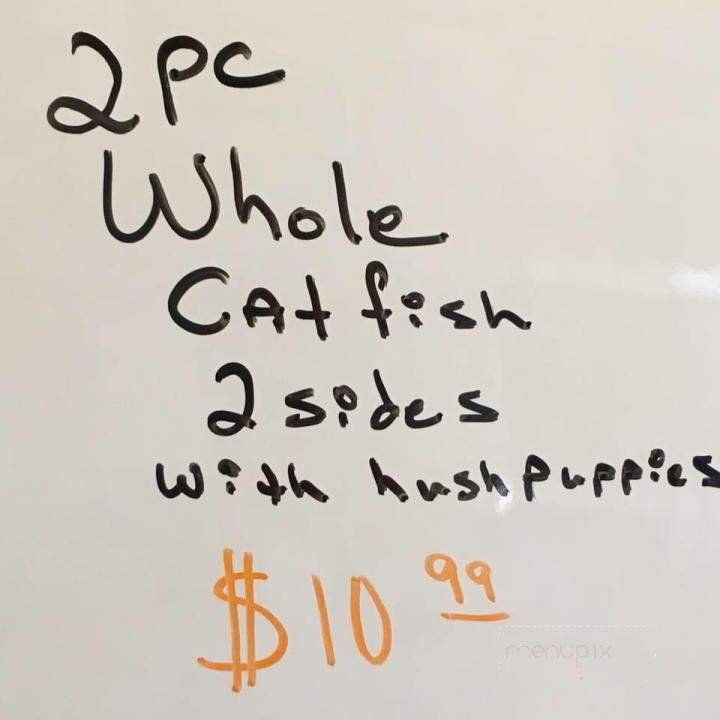 2 PC
Whole
CAtfish
2 sides
with hushpuppies
$10 99
menupix